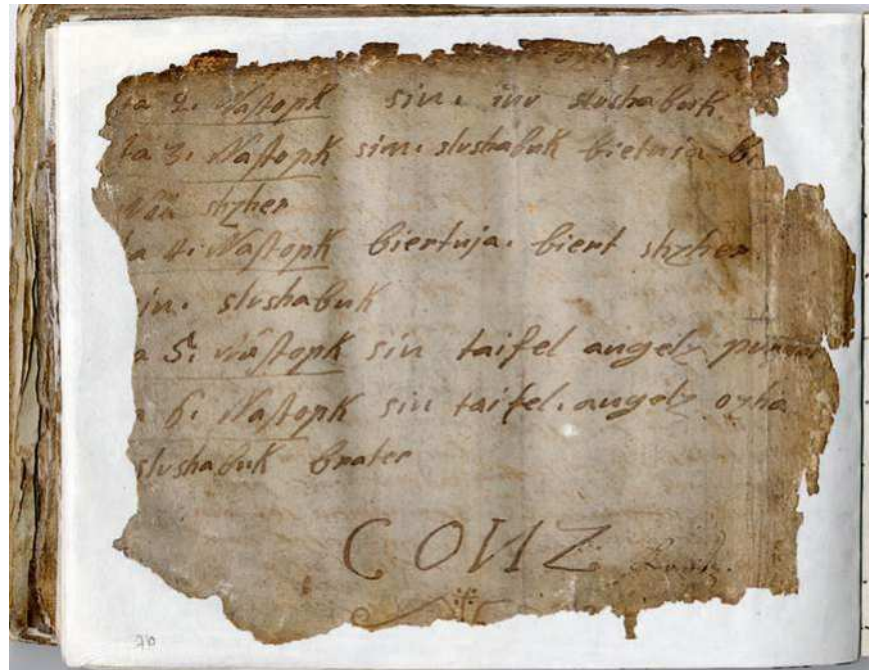 ta 2. Naſtopk sin. inu slushabuk
ta 3. Naſtopk sin. slushabuk bietuja
shzher
ta 4. Naſtopk biertuja. biert shzher
sin. slushabuk
a 5. Naſtopk sin taifel angelz
a 6. Naſtopk sin taifel. angelz ozha
slushabuk brater
COИZ
70